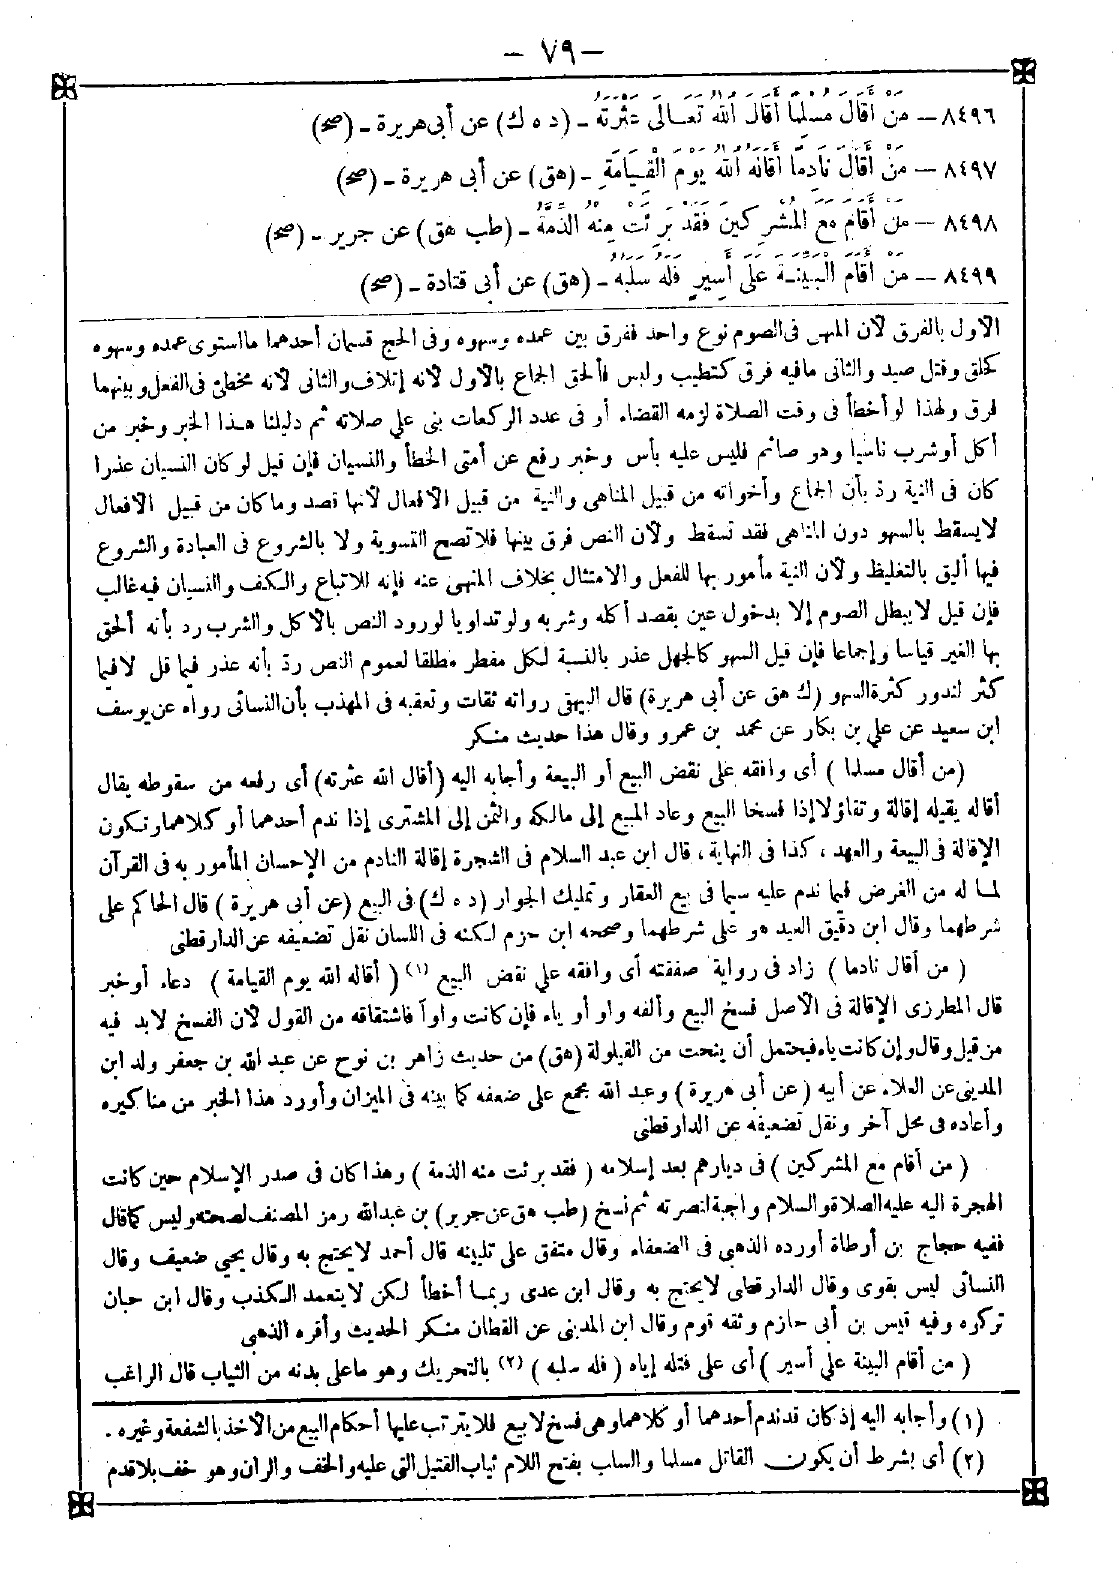 – ٧٩ –
٨٤٩٦ – مَنْ أَقَالَ مُسْلِمًا أَقَالَ اللّٰهُ تَعَالَى عَثْرَتَهُ - (د ه ك) عن أبى هريرة - (صح)
٨٤٩٧ – مَنْ أَقَالَ نَادِمًا أَقَالَهُ اللّٰهُ يَوْمَ الْقِيَامَةِ - (هق) عن أبى هريرة - (صح)
٨٤٩٨ – مَنْ أَقَامَ مَعَ الْمُشْرِكِينَ فَقَدْ بَرِئَتْ مِنْهُ الذِّمَّةُ - (طب هق) عن جرير - (صح)
٨٤٩٩ – مَنْ أَقَامَ الْبَيِّنَةَ عَلَى أَسِيرٍ فَلَهُ سَلَبُهُ - (هق) عن أبى قتادة - (صح)
الأول بالفرق لأن المنهى فى الصوم نوع واحد ففرق بين عمده وسهوه وفى الحج قسمان أحدهما ما استوى عمده وسهوه
كحلق وقتل صيد والثانى مافيه فرق كتطيب ولبس فألحق الجماع بالأول لأنه إتلاف والثانى لأنه مخطئ فى الفعل وبينهما
فرق ولهذا لو أخطأ فى وقت الصلاة لزمه القضاء أو فى عدد الركعات بنى على صلاته ثم دليلنا هذا الخبر وخبر من
أكل أو شرب ناسيا وهو صائم فليس عليه بأس وخبر رفع عن أمتى الخطأ والنسيان فإن قيل لو كان النسيان عذرا
كان فى النية ردّ بأن الجماع وأخواته من قبيل المناهى والنية من قبيل الأفعال لأنها قصد وما كان من قبيل الأفعال
لايسقط بالسهو دون المناهى فقد تسقط ولأن النص فرق بينها فلا تصح التسوية ولا بالشروع فى العبادة والشروع
فيها أليق بالتغليظ ولأن النية مأمور بها للفعل والامتثال بخلاف المنهى عنه فإنه للاتباع والكف والنسيان فيه غالب
فإن قيل لا يبطل الصوم إلا بدخول عين بقصد أكله وشربه ولو تداويا لورود النص بالأكل والشرب رد بأنه ألحق
بها الغير قياسا وإجماعا فإن قيل السهو كالجهل عذر بالنسبة لكل مفطر مطلقا لعموم النص ردّ بأنه عذر فيما قل لا فيما
كثر لندور كثرة السهو (ك هق عن أبى هريرة) قال البيهقى رواته ثقات وتعقبه فى المهذب بأن النسائى رواه عن يوسف
ابن سعيد عن على بن بكار عن محمد بن عمرو وقال هذا حديث منكر
(من أقال مسلما) أى وافقه على نقض البيع أو البيعة وأجابه اليه (أقال الله عثرته) أى رفعه من سقوطه يقال
أقاله يقيله إقالة وتقاؤلا إذا فسخا البيع وعاد المبيع إلى مالكه والثمن إلى المشترى إذا ندم أحدهما أو كلاهما وتكون
الإقالة فى البيعة والعهد ، كذا فى النهاية ، قال ابن عبد السلام فى الشجرة إقالة النادم من الإحسان المأمور به فى القرآن
لما له من الغرض فيما ندم عليه سيما فى بيع العقار وتمليك الجوار (د ه ك) فى البيع (عن أبى هريرة) قال الحاكم على
شرطهما وقال ابن دقيق العيد هو على شرطهما وصححه ابن حزم لكنه فى اللسان نقل تضعيفه عن الدارقطنى
(من أقال نادما) زاد فى رواية صفقته أى وافقه على نقض البيع (١) (أقاله الله يوم القيامة) دعاء أو خبر
قال المطرزى الإقالة فى الأصل فسخ البيع وألفه واو أو ياء فإن كانت واوا فاشتقاقه من القول لأن الفسخ لابد فيه
من قيل وقال وإن كانت ياء فيحتمل أن ينحت من القيلولة (هق) من حديث زاهر بن نوح عن عبد الله بن جعفر ولد ابن
المدينى عن العلاء عن أبيه (عن أبى هريرة) وعبد الله مجمع على ضعفه كما بينه فى الميزان وأورد هذا الخبر من مناكيره
وأعاده فى محل آخر ونقل تضعيفه عن الدارقطنى
(من أقام مع المشركين) فى ديارهم بعد إسلامه (فقد برئت منه الذمة) وهذا كان فى صدر الإسلام حين كانت
الهجرة اليه عليه الصلاة والسلام واجبة لنصرته ثم نسخ (طب هق عن جرير) بن عبدالله رمز المصنف لصحته وليس كما قال
ففيه حجاج بن أرطاة أورده الذهبى فى الضعفاء وقال متفق على تليينه قال أحمد لا يحتج به وقال يحيى ضعيف وقال
النسائى ليس بقوى وقال الدارقطنى لا يحتج به وقال ابن عدى ربما أخطأ لكن لا يتعمد الكذب وقال ابن حبان
تركوه وفيه قيس بن أبى حازم وثقه قوم وقال ابن المدينى عن القطان منكر الحديث وأقره الذهبى
(من أقام البينة على أسير) أى على قتله إياه (فله سلبه) (٢) بالتحريك وهو ما على بدنه من الثياب قال الراغب
(١) وأجابه اليه إذ كان قد ندم أحدهما أو كلاهما وهى فسخ لا بيع فلا يترتب عليها أحكام البيع من الأخذ بالشفعة وغيره .
(٢) أى بشرط أن يكون القاتل مسلما والسلب بفتح اللام ثياب القتيل التى عليه والخف والران وهو خف بلا قدم